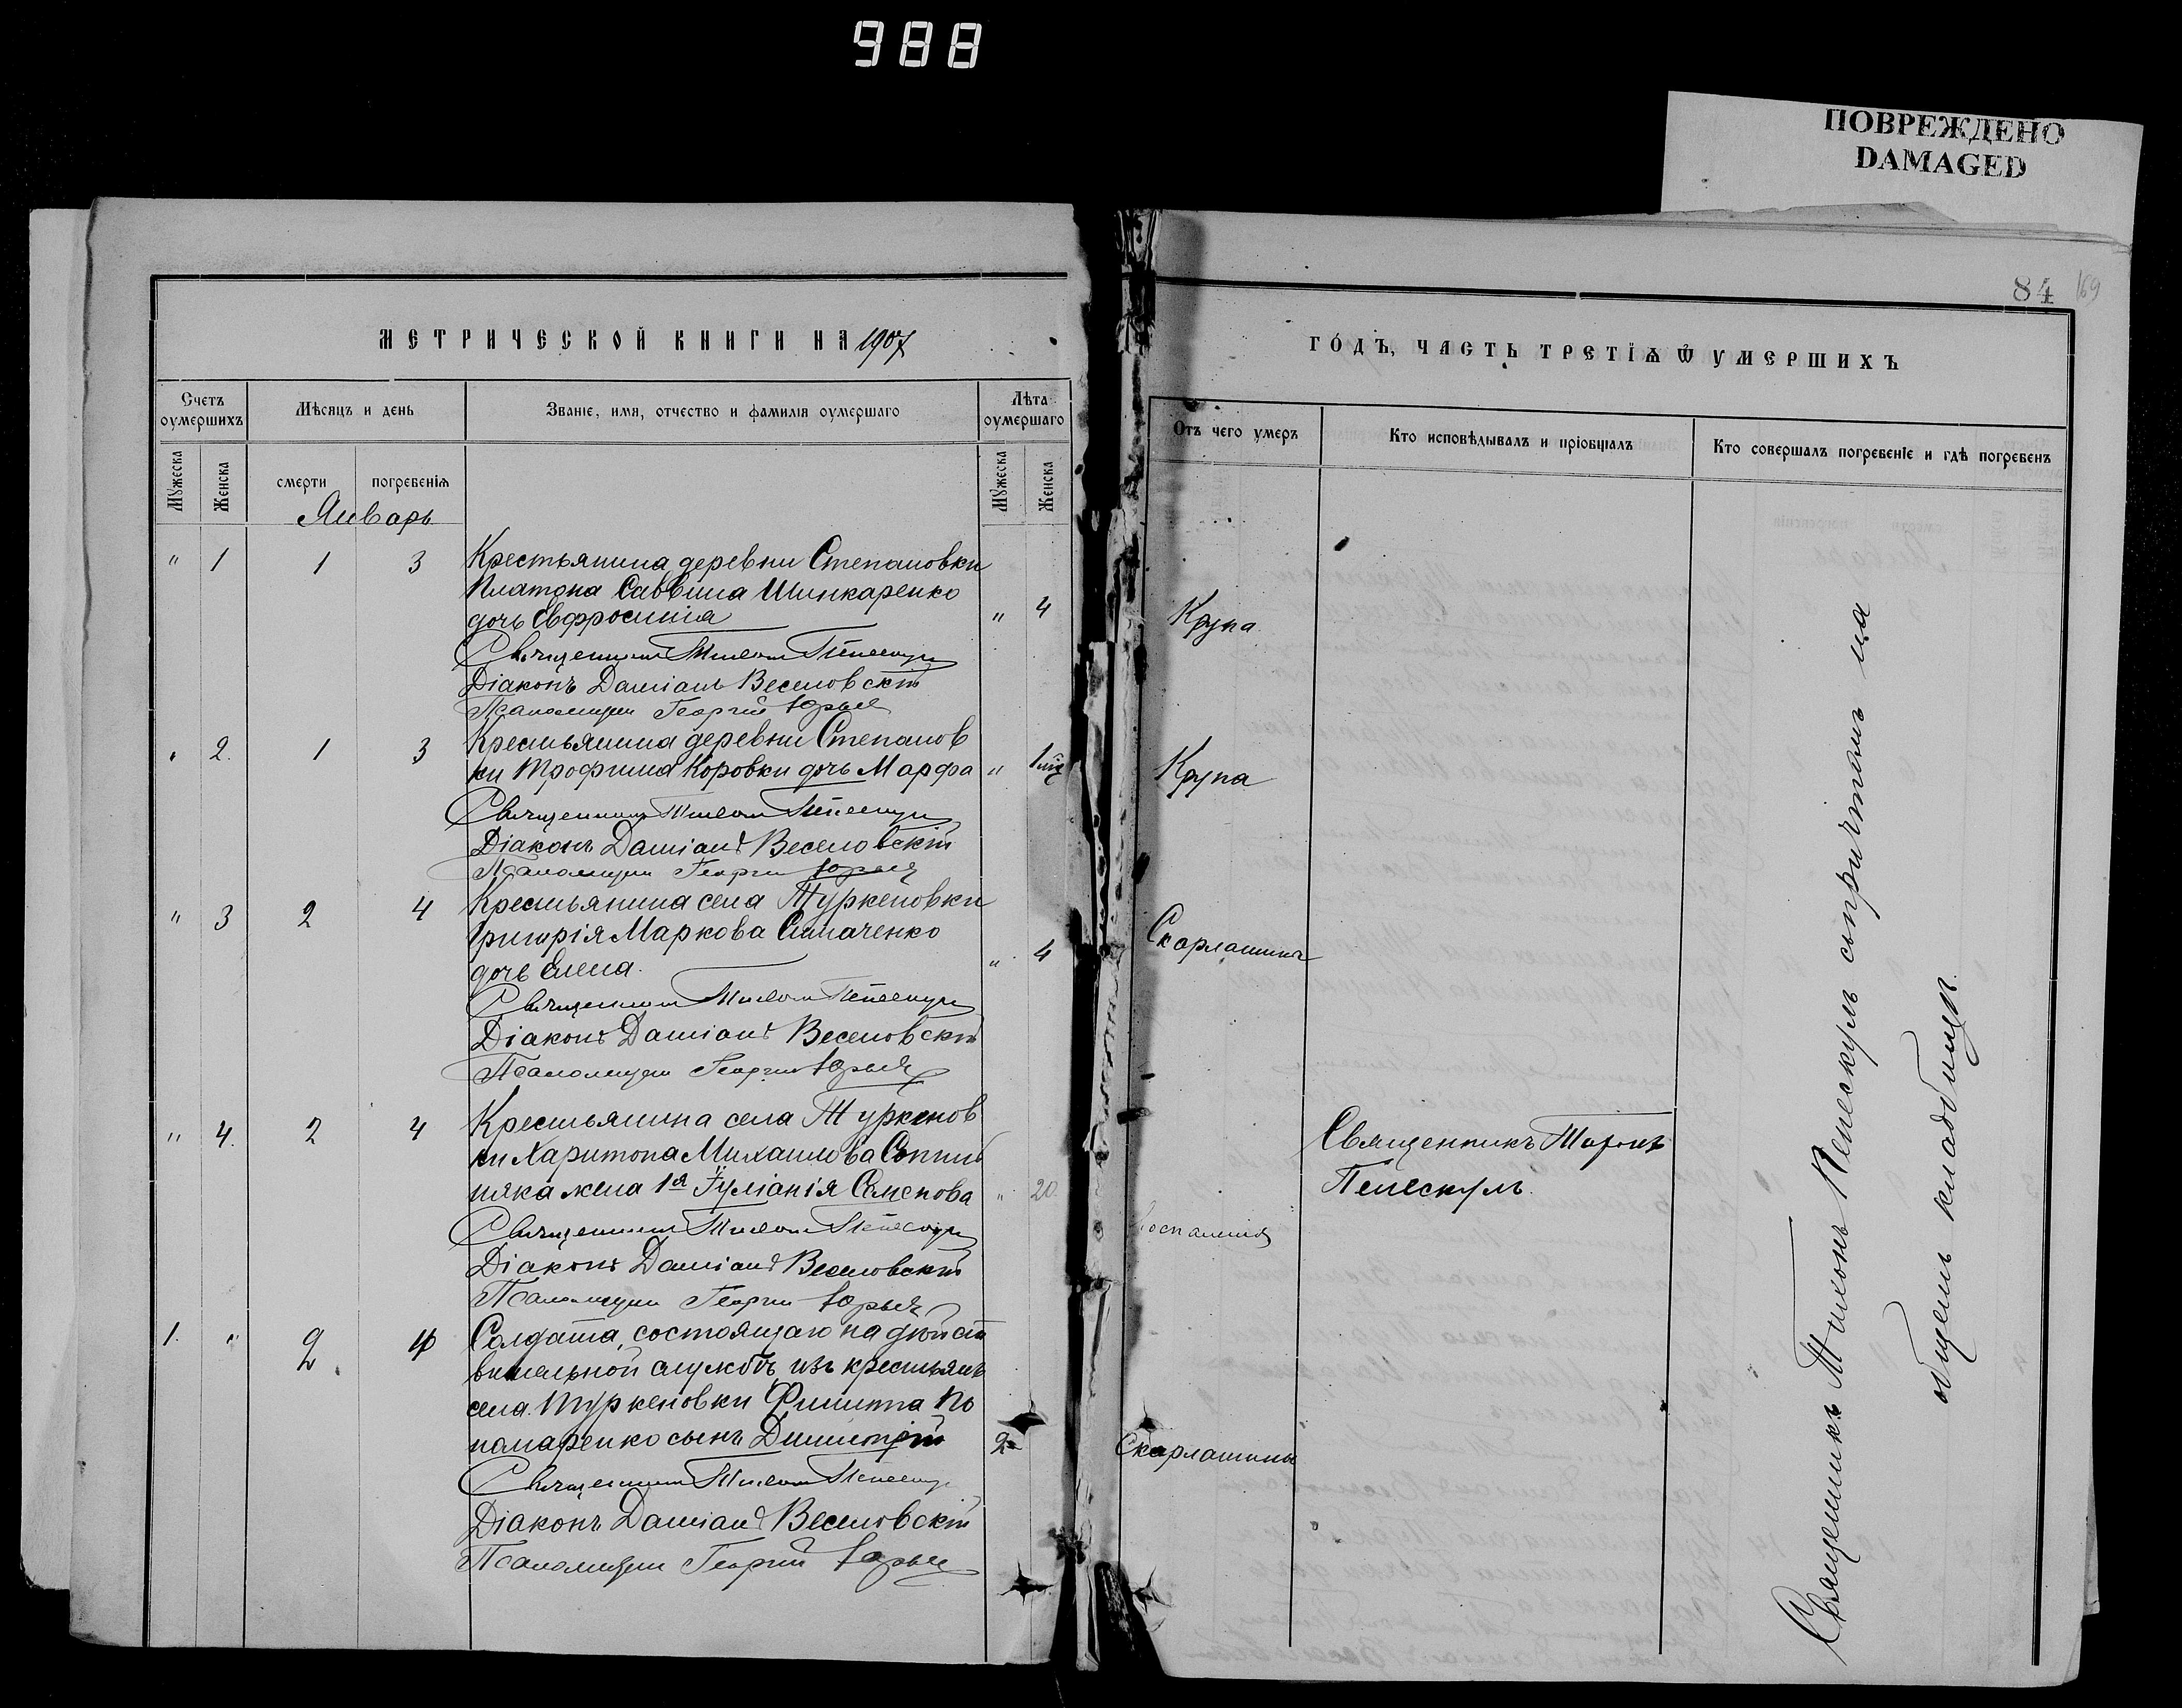 988
ПОВРЕЖДЕНО
DAMAGED
84 169
МЕТРИЧЕСКОЙ КНИГИ НА 1907
Счетъ оумершихъ
Мѣсяцъ и день
Званіе, имя, отчество и фамилія оумершаго
Лѣта оумершаго
Мужеска
Женска
смерти
погребенія
Мужеска
Женска
Январь
" 1 1 3 Крестьянина деревни Степановки
Платона Саввина Шинкаренко
дочь Евфросинія " 4
Священникъ Тихонъ Пелескулъ
Діаконъ Даміанъ Веселовскій
Псаломщикъ Георгій Юрьев
" 2. 1 3 Крестьянина деревни Степанов
ки Трофима Коровки дочь Марфа " 1 мѣс
Священникъ Тихонъ Пелескулъ
Діаконъ Даміанъ Веселовскій
Псаломщикъ Георгій Юрьев
" 3 2 4 Крестьянина села Туркеновки
Григорія Маркова Симаченко
дочь Елена. " 4
Священникъ Тихонъ Пелескулъ
Діаконъ Даміанъ Веселовскій
Псаломщикъ Георгій Юрьев
" 4. 2 4 Крестьянина села Туркенов
ки Харитона Михаилова
няка жена 1я Іуліанія Семенова " 20.
Священникъ Тихонъ Пелескулъ
Діаконъ Даміанъ Веселовскій
Псаломщикъ Георгій Юрьев
1. " 2 4 Солдата, состоящаго на дѣйст
вительной службѣ, изъ крестьянъ
села Туркеновки Филиппа По
номаренко сынъ Димитрій 2
Священникъ Тихонъ Пелескулъ
Діаконъ Даміанъ Веселовскій
Псаломщикъ Георгій Юрьев
ГОДЪ, ЧАСТЬ ТРЕТІЯ Ѿ УМЕРШИХЪ
Отъ чего умеръ
Кто исповѣдывалъ и пріобщалъ
Кто совершалъ погребеніе и гдѣ погребенъ
Крупа
Крупа
Скарлатина
Священникъ Тихонъ
Пелескулъ.
Воспаленія
Скарлатины
Священникъ Тихонъ Пелескулъ съ причтомъ на
общемъ кладбищѣ.